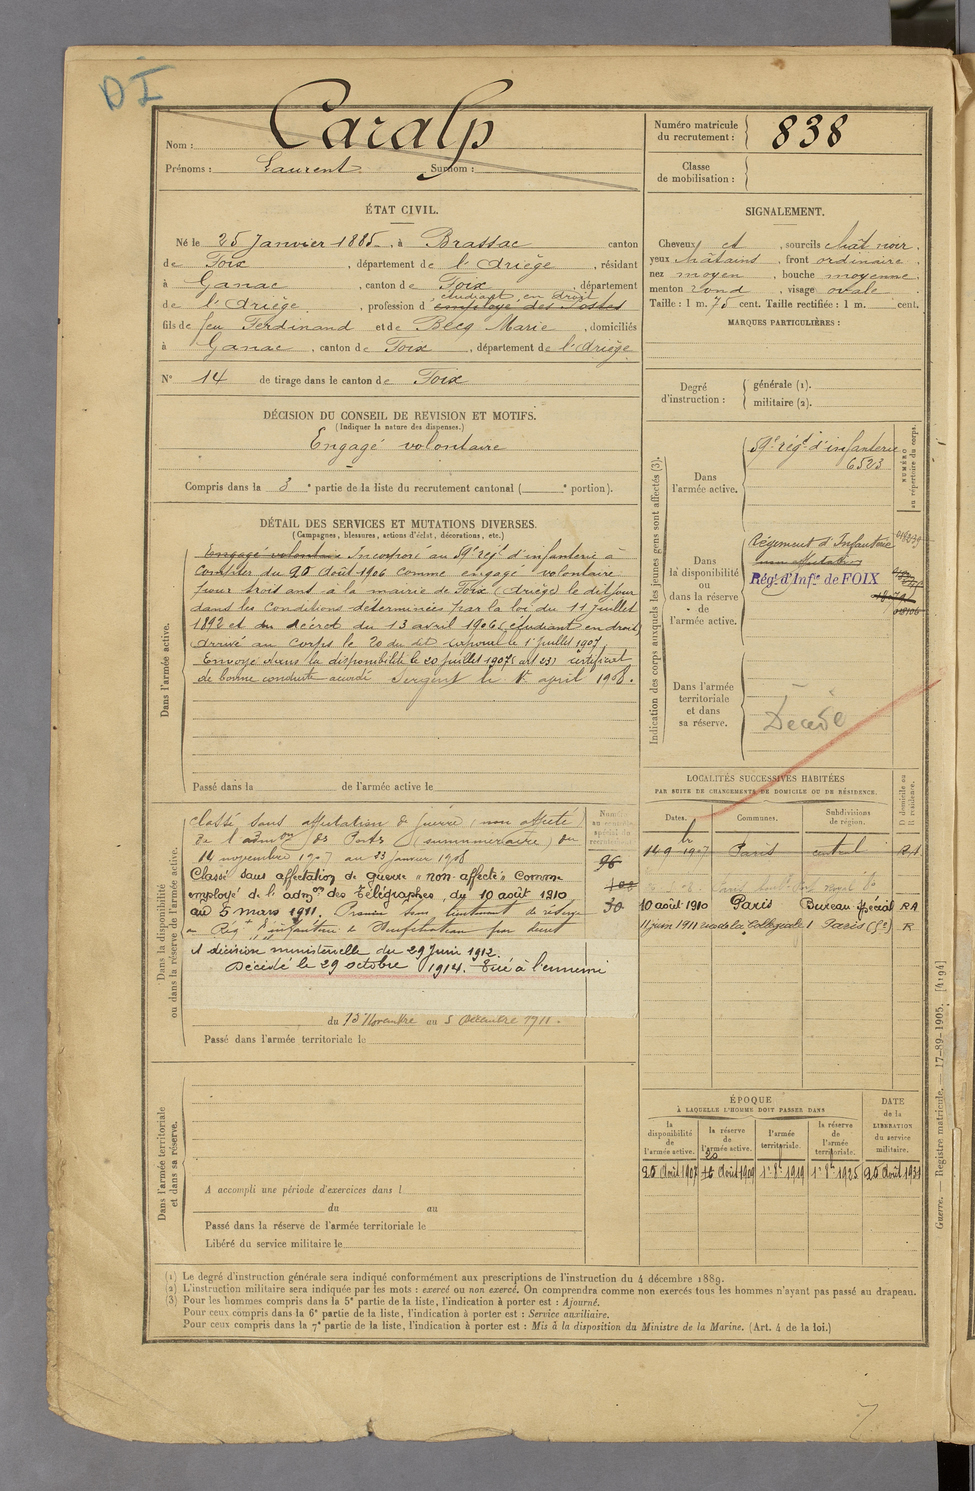 DI
Nom : Caralp
Prénoms : Laurent Surnom :
Numéro matricule du recrutement : 838
Classe de mobilisation :
ÉTAT CIVIL.
Né le 25 Janvier 1885, à Brassac canton
de Foix, département de l'Ariège, résidant
à Ganac, canton de Foix, département
étudiant en droit
de l'Ariège, profession d'employé des Postes
fils de feu Ferdinand et de Becq Marie, domiciliés
à Ganac, canton de Foix, département de l'Ariège
N° 14 de tirage dans le canton de Foix
SIGNALEMENT.
Cheveux et, sourcils chat noir.
yeux châtains, front ordinaire.
nez moyen, bouche moyenne.
menton rond, visage ovale.
Taille : 1 m. 75 cent. Taille rectifiée : 1 m. cent.
MARQUES PARTICULIÈRES :
Degré d'instruction : générale (1).
militaire (2).
DÉCISION DU CONSEIL DE REVISION ET MOTIFS.
(Indiquer la nature des dispenses.)
Engagé volontaire
Compris dans la 3e partie de la liste du recrutement cantonal ( e portion).
DÉTAIL DES SERVICES ET MUTATIONS DIVERSES.
(Campagnes, blessures, actions d'éclat, décorations, etc.)
Dans l'armée active.
Engagé volontaire Incorporé au 59e régt d'infanterie à
compter du 20 Août 1906 comme engagé volontaire
pour trois ans à la mairie de Foix (Ariège) le dit jour
dans les conditions déterminées par la loi du 11 juillet
1892 et du décret du 13 avril 1906 (étudiant en droit)
Arrivé au corps le 20 du dit Caporal le 1er Juillet 1907
Envoyé dans la disponibilité le 20 juillet 1907 (art 23) certificat
de bonne conduite accordé Sergent le 1er april 1908.
Passé dans la de l'armée active le
Indication des corps auxquels les jeunes gens sont affectés (3).
NUMÉRO au répertoire du corps.
Dans l'armée active.
59e régt d'infanterie
6523
Dans la disponibilité ou dans la réserve de l'armée active.
Régiment d'Infanterie
Régt d'Infie de FOIX
Dans l'armée territoriale et dans sa réserve.
Décédé
Dans la disponibilité ou dans la réserve de l'armée active.
Classé sans affectation de guerre (non affecté)
de l'admon des Postes (surnuméraire) du
14 novembre 1907 au 23 janvier 1908
Classé sans affectation de guerre "non-affecté" comme
employé de l'admon des Télégraphes, du 10 août 1910
au 5 mars 1911. Promu sous lieutenant de réserve
au Régt d'infanterie de
et décision ministérielle du 29 Juin 1912.
Décédé le 29 octobre 1914. Tué à l'ennemi
du 13 Novembre au 5 Décembre 1911.
Passé dans l'armée territoriale le
96
30
LOCALITÉS SUCCESSIVES HABITÉES
PAR SUITE DE CHANGEMENTS DE DOMICILE OU DE RÉSIDENCE.
Dates. Communes. Subdivisions de région. D domicile ou R résidence.
14 9bre 1907 Paris central RA
10 août 1910 Paris Bureau spécial RA
11 juin 1911 rue de la Collegiale 1 Paris (5e) R
ÉPOQUE
À LAQUELLE L'HOMME DOIT PASSER DANS
la disponibilité de l'armée active. la réserve de l'armée active. l'armée territoriale. la réserve de l'armée territoriale.
DATE de la LIBÉRATION du service militaire.
20 Août 1907 20 Août 1909 1er 8bre 1919 1er 8bre 1925 20 Août 1931
Dans l'armée territoriale et dans sa réserve.
A accompli une période d'exercices dans l
du au
Passé dans la réserve de l'armée territoriale le
Libéré du service militaire le
Guerre. — Registre matricule. — 17-89-1905. [4194]
(1) Le degré d'instruction générale sera indiqué conformément aux prescriptions de l'instruction du 4 décembre 1889.
(2) L'instruction militaire sera indiquée par les mots : exercé ou non exercé. On comprendra comme non exercés tous les hommes n'ayant pas passé au drapeau.
(3) Pour les hommes compris dans la 5e partie de la liste, l'indication à porter est : Ajourné.
Pour ceux compris dans la 6e partie de la liste, l'indication à porter est : Service auxiliaire.
Pour ceux compris dans la 7e partie de la liste, l'indication à porter est : Mis à la disposition du Ministre de la Marine. (Art. 4 de la loi.)
7